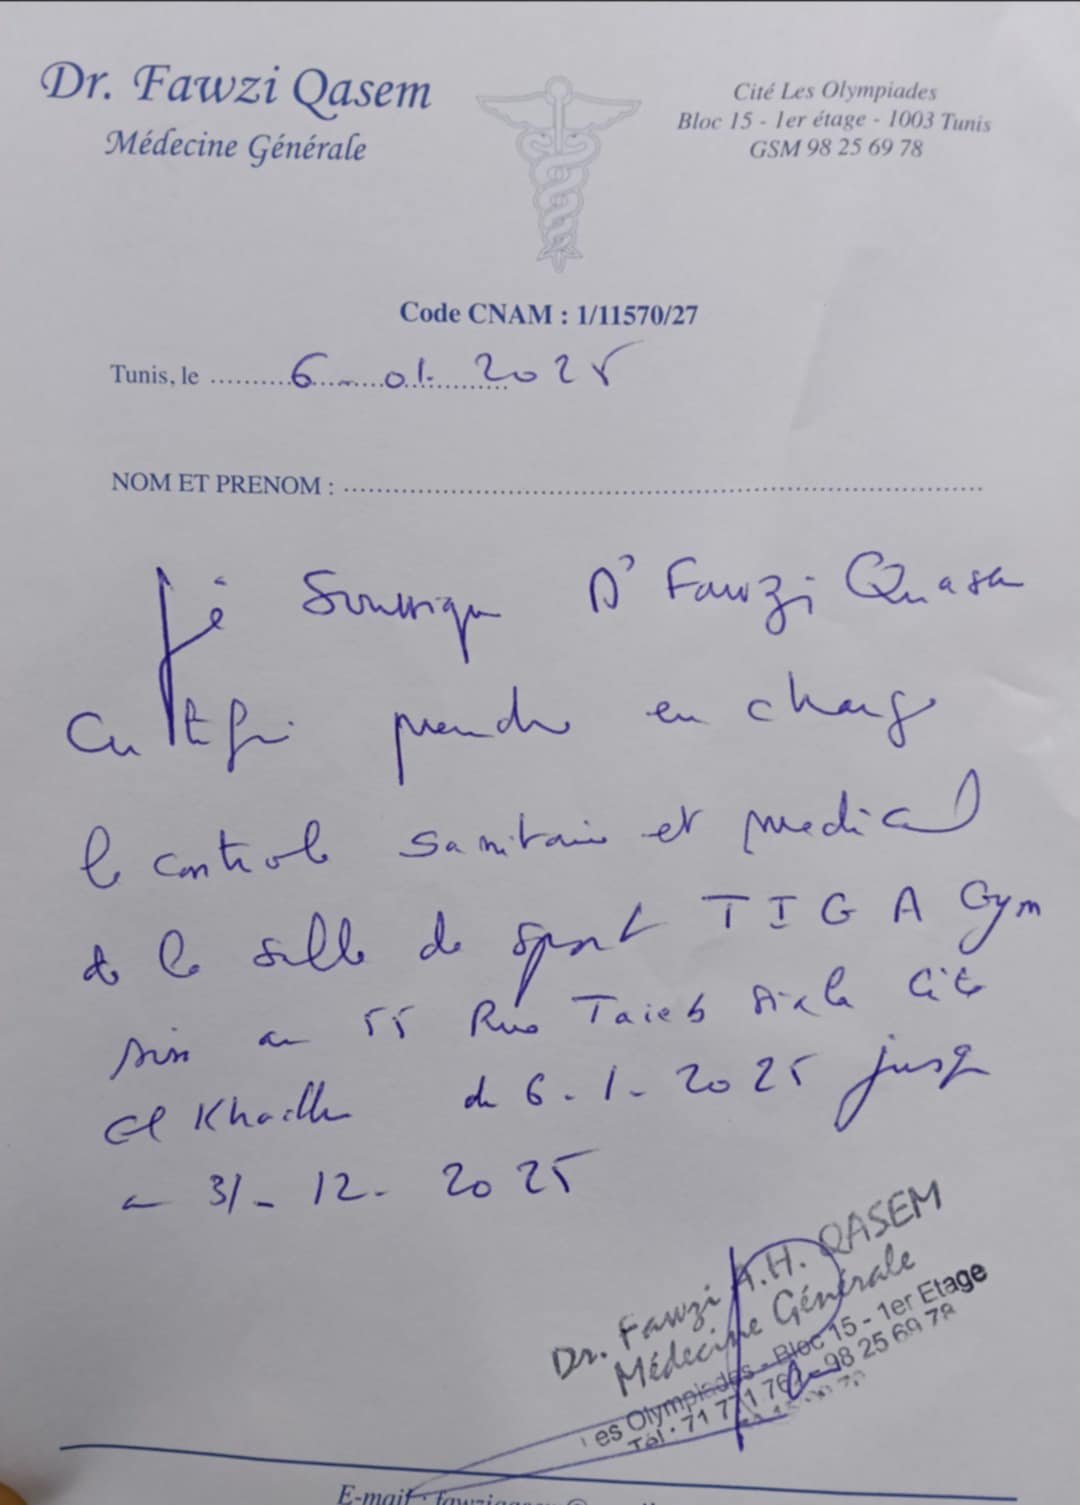 Dr. Fawzi Qasem
Médecine Générale
Cité Les Olympiades
Bloc 15 - 1er étage - 1003 Tunis
GSM 98 25 69 78
Code CNAM : 1/11570/27
Tunis, le 6 - 01. 2025
NOM ET PRENOM :
Je Soussigne Dr Fawzi Quasem
Certifie prendre en charge
le control sanitaire et medical
de la salle de sport TIGA Gym
sise au 55 Rue Taieb Cité
El Khadra du 6. 1. 2025 jusqu
au 31 - 12. 2025
Dr. Fawzi A.H. QASEM
Médecine Générale
Les Olympiades - Bloc 15 - 1er Etage
Tél : 71 771 98 25 69 78
E-mail :